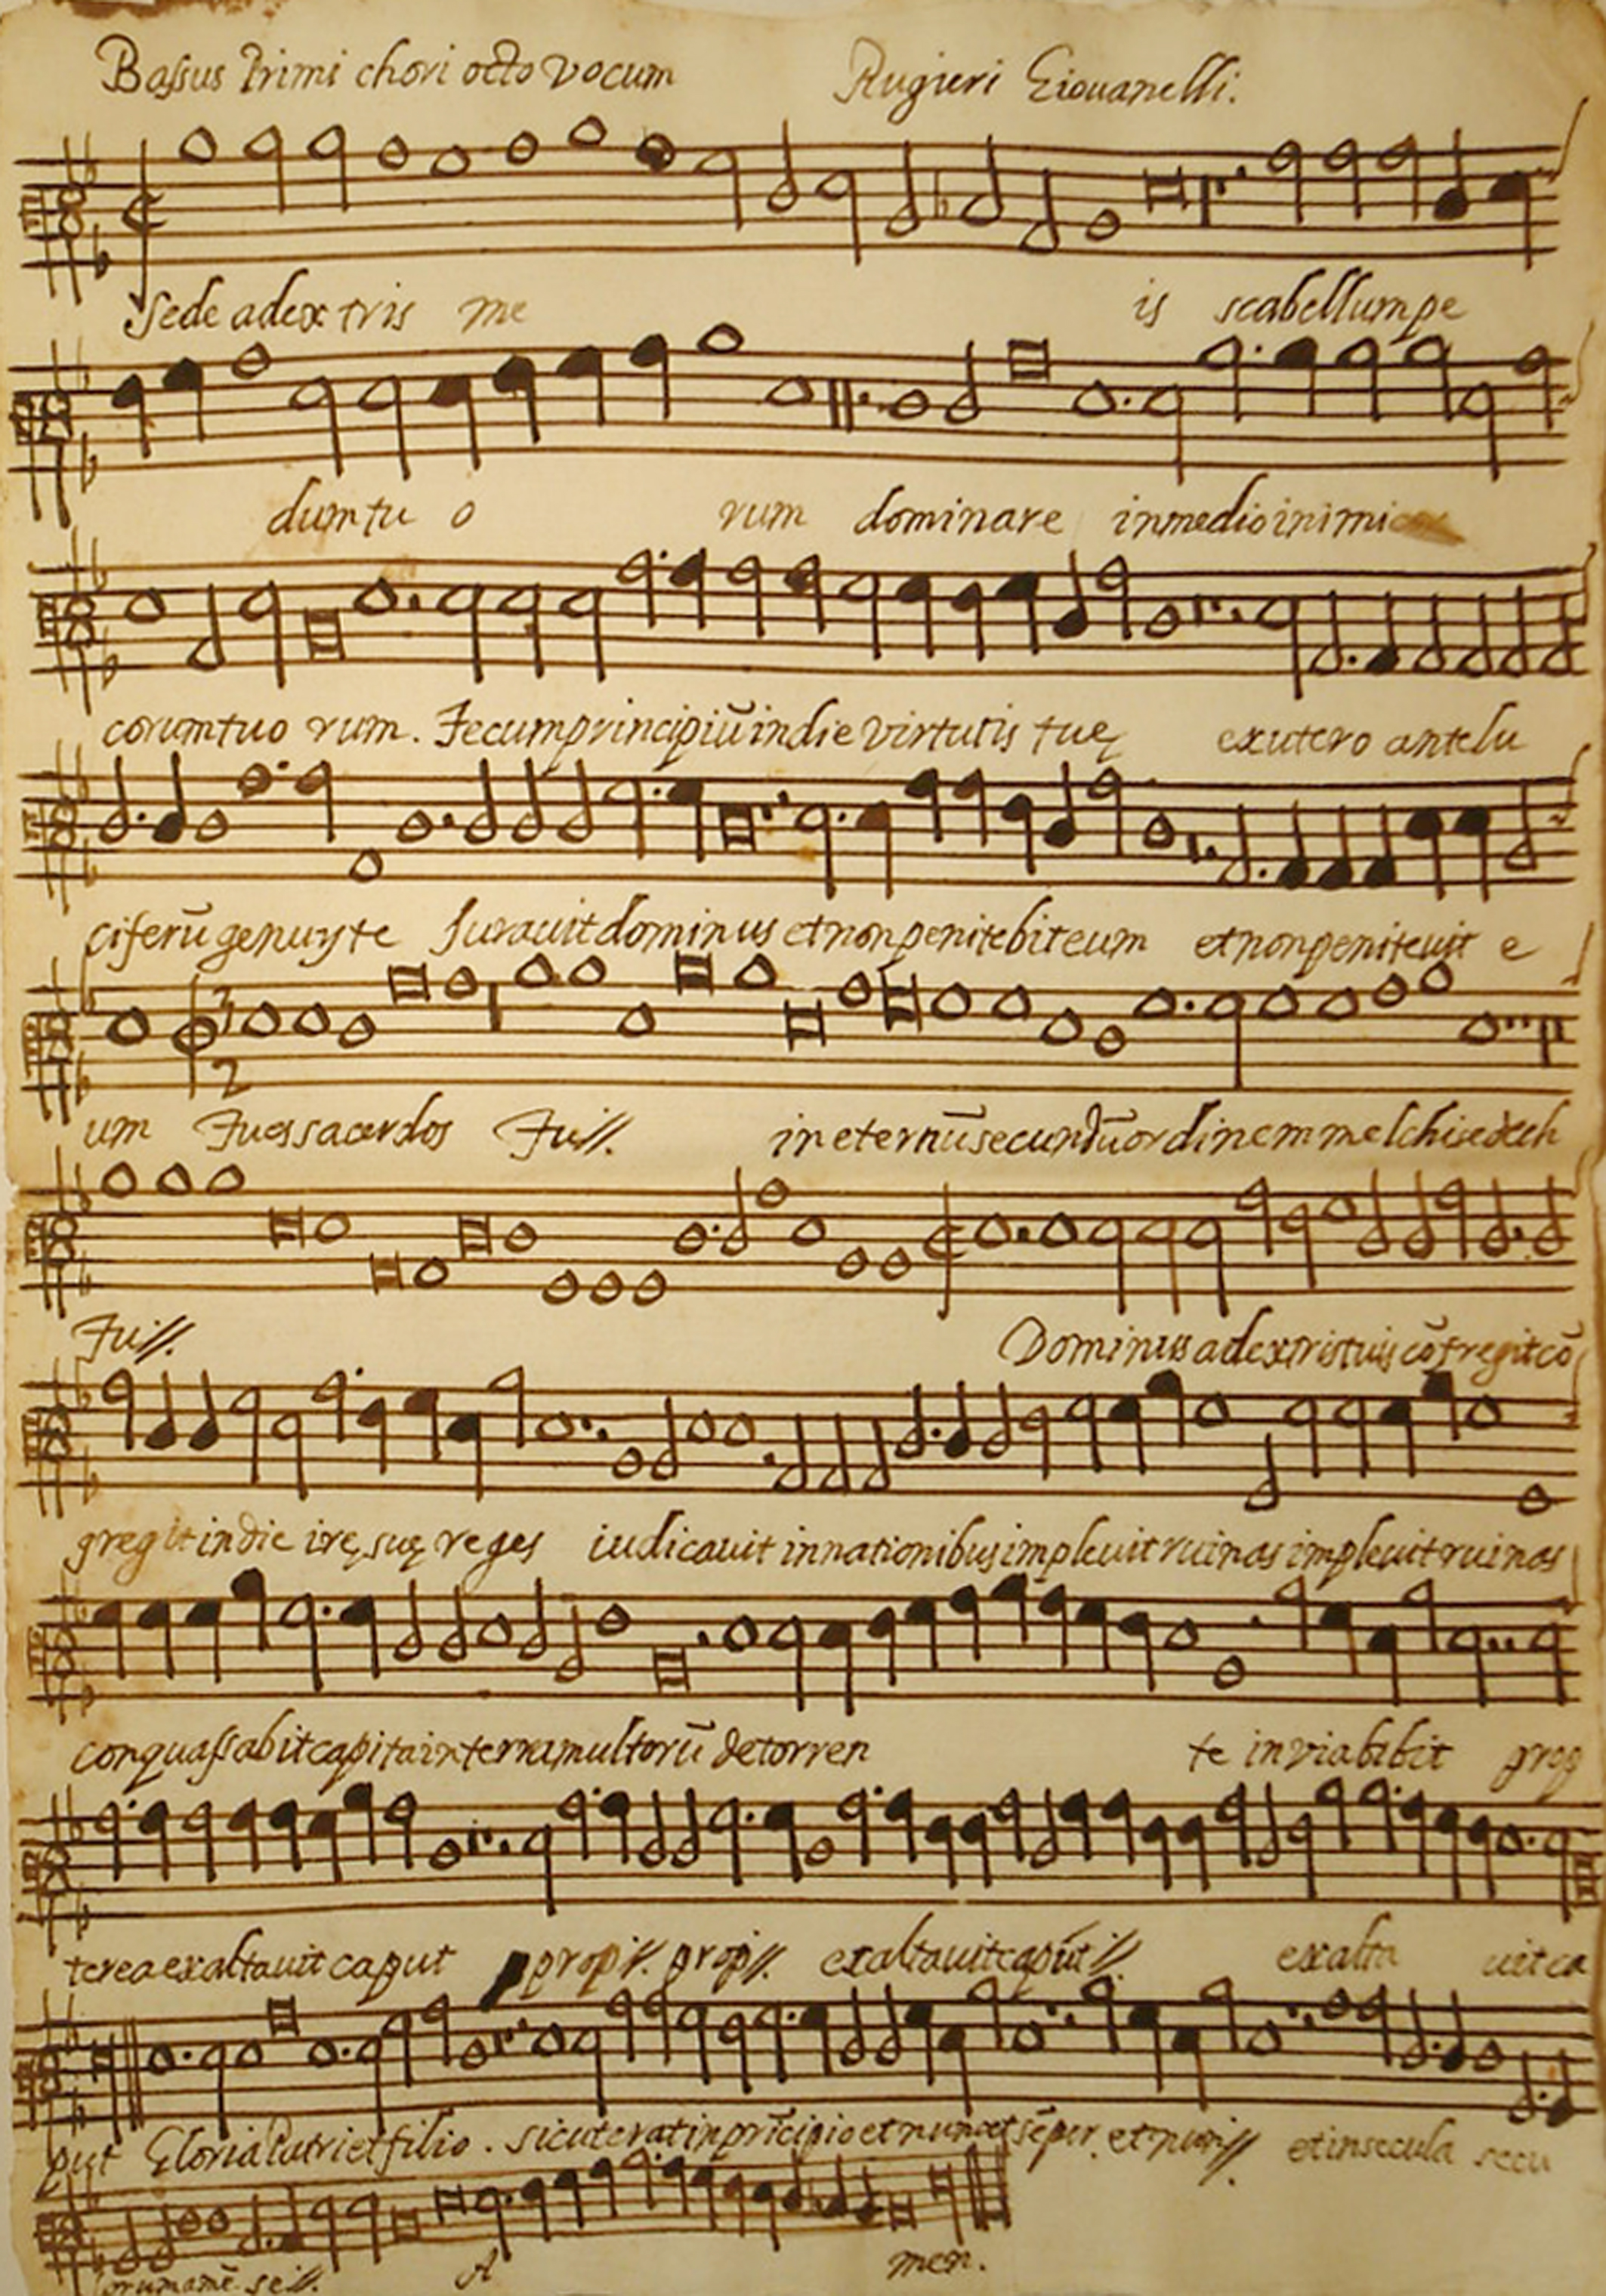 Bassus Primi chori octo vocum Rugieri Giouanelli.
Sede adextris me is scabellum pe
dum tu o rum dominare inmedioinimi
corumtuo rum. Tecumprincipiūindie virtutis tuę exutero antelu
ciferū genuyte Jurauit dominus etnonpenitebiteum etnonpeniteuit e
um Tuessacerdos Tu//. ineternūsecundūordinem melchisedech
Tu//. Dominus adextristuis cōfregit cō
fregit indie irę suę reges iudicauit innationibus impleuit ruinas impleuit ruinas
conquassabit capita interra multorū detorren te inviabibit prop
terea exaltauit caput prop//. prop//. exaltauit caput // exalta uit ca
put Gloria Patri et filio . sicuterat inprīcipio et nunc et sēper et nun// etinsecula secu
lorumamē se//. A men.